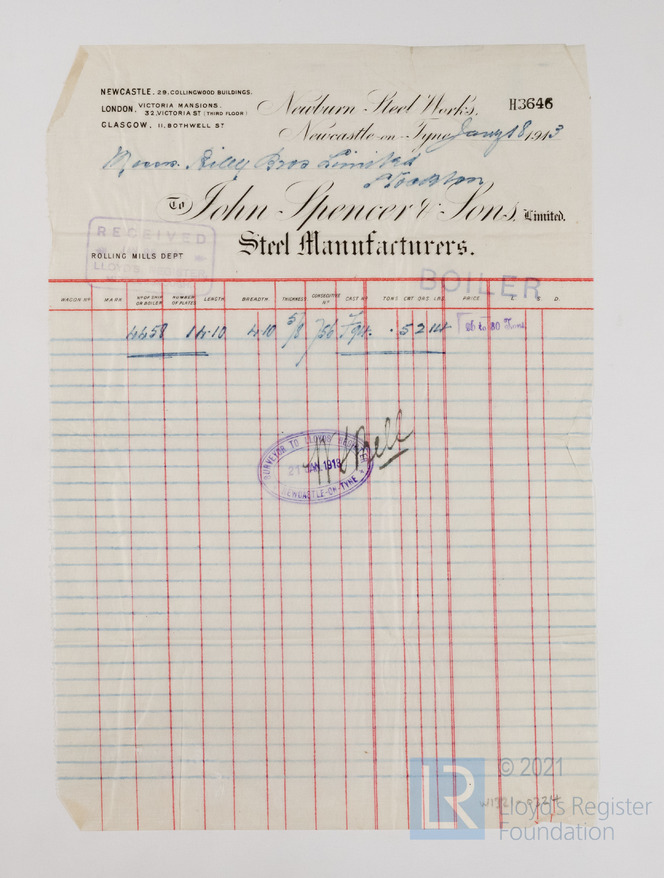 NEWCASTLE. 29, COLLINGWOOD BUILDINGS.
LONDON. VICTORIA MANSIONS.
32, VICTORIA ST (THIRD FLOOR)
GLASGOW, 11, BOTHWELL ST
Newburn Steel Works,
H3646
Newcastle-on-Tyne Jany 18 1913
Messrs. Riley Bros Limited
Stockton
To John Spencer & Sons, Limited.
Steel Manufacturers.
RECEIVED
LLOYD'S REGISTER
ROLLING MILLS DEPT
BOILER
WAGON No MARK No OF SHIP OR BOILER NUMBER OF PLATES LENGTH BREADTH THICKNESS CONSECUTIVE No CAST No TONS CWT QRS LBS PRICE £ S. D.
4458 1 4.10 4.10 5/8 756 . 5 2 14 26 to 30 Tons
SURVEYOR TO LLOYD'S REGISTER
21 JAN. 1913
NEWCASTLE-ON-TYNE
LR
© 2021
Lloyd's Register
Foundation